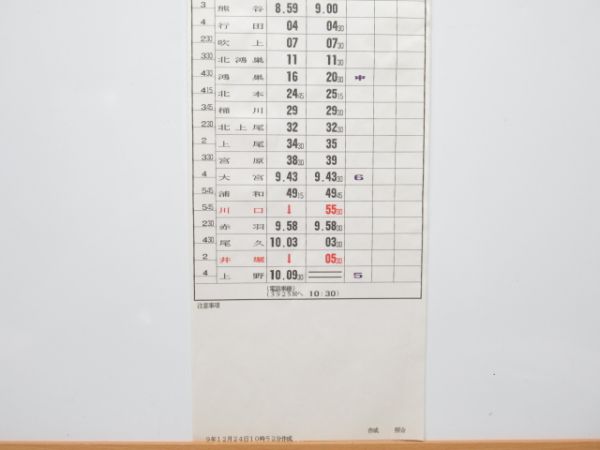 3 熊谷 8.59 9.00
4 行田 04 04 30
230 吹上 07 07 30
300 北鴻巣 11 11 30
430 鴻巣 16 20 30 中
415 北本 24 45 25 15
345 桶川 29 29 30
230 北上尾 32 32 30
2 上尾 34 30 35
330 宮原 38 30 39
4 大宮 9.43 9.43 30 6
545 浦和 49 15 49 45
545 川口 ↓ 55 30
230 赤羽 9.58 9.58 30
430 尾久 10.03 03 30
2 井堀 ↓ 05 30
4 上野 10.09 30 5
10:30)
注意事項
作成 照合
9年12月24日10時52分作成